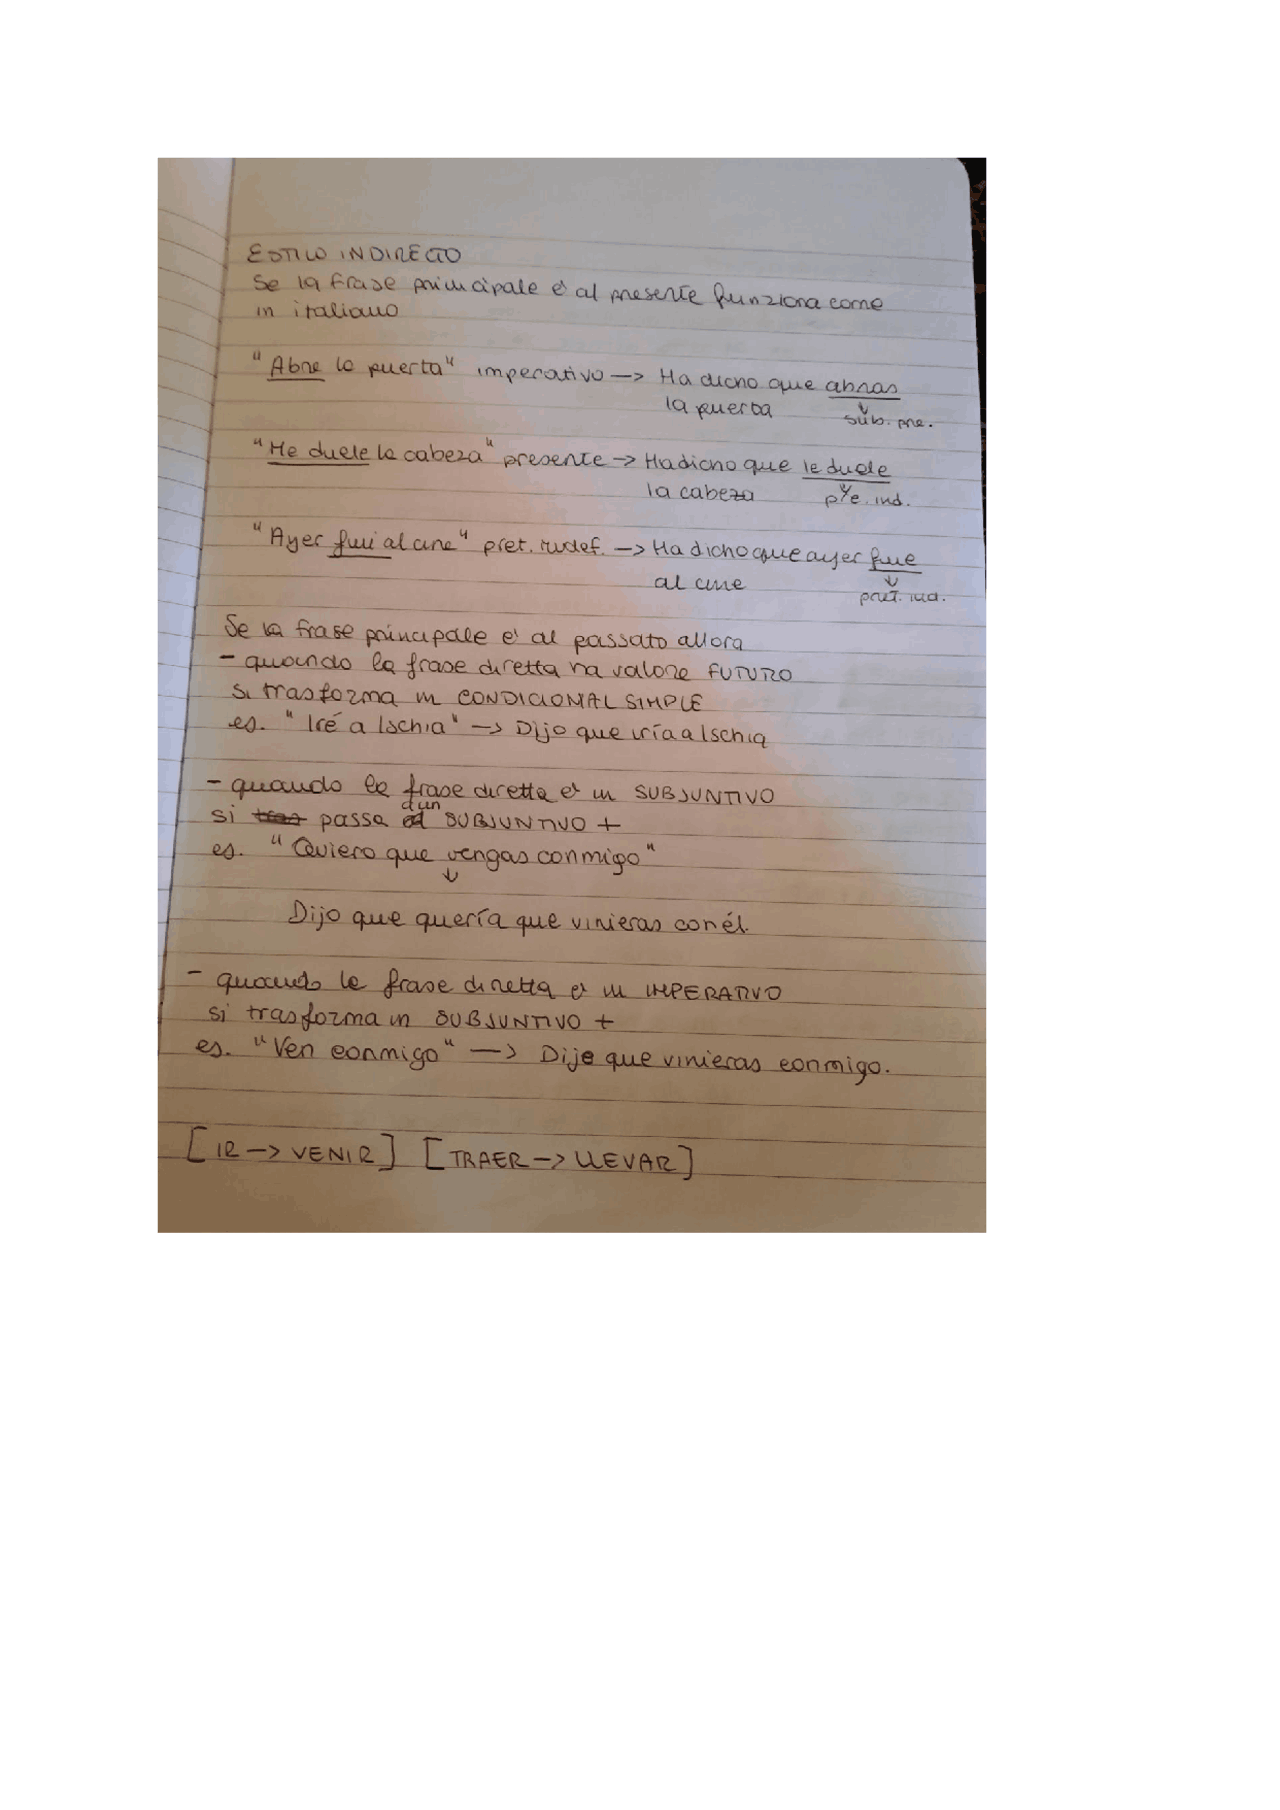 ESTILO INDIRECTO
Se la frase principale è al presente funziona come
in italiano
"Abre la puerta" imperativo -> Ha dicho que abras
la puerta sub. pre.
"Me duele la cabeza" presente -> Ha dicho que le duele
la cabeza pre. ind.
"Ayer fui al cine" pret. indef. -> Ha dicho que ayer fue
al cine pret. ind.
Se la frase principale è al passato allora
- quando la frase diretta ha valore FUTURO
si trasforma in CONDICIONAL SIMPLE
es. "Iré a Ischia" -> Dijo que iría a Ischia
- quando la frase diretta è in SUBJUNTIVO
si passa a un SUBJUNTIVO +
es. "Quiero que vengas conmigo"
Dijo que quería que vinieras con él.
- quando la frase diretta è in IMPERATIVO
si trasforma in SUBJUNTIVO +
es. "Ven conmigo" -> Dije que vinieras conmigo.
[IR -> VENIR] [TRAER -> LLEVAR]